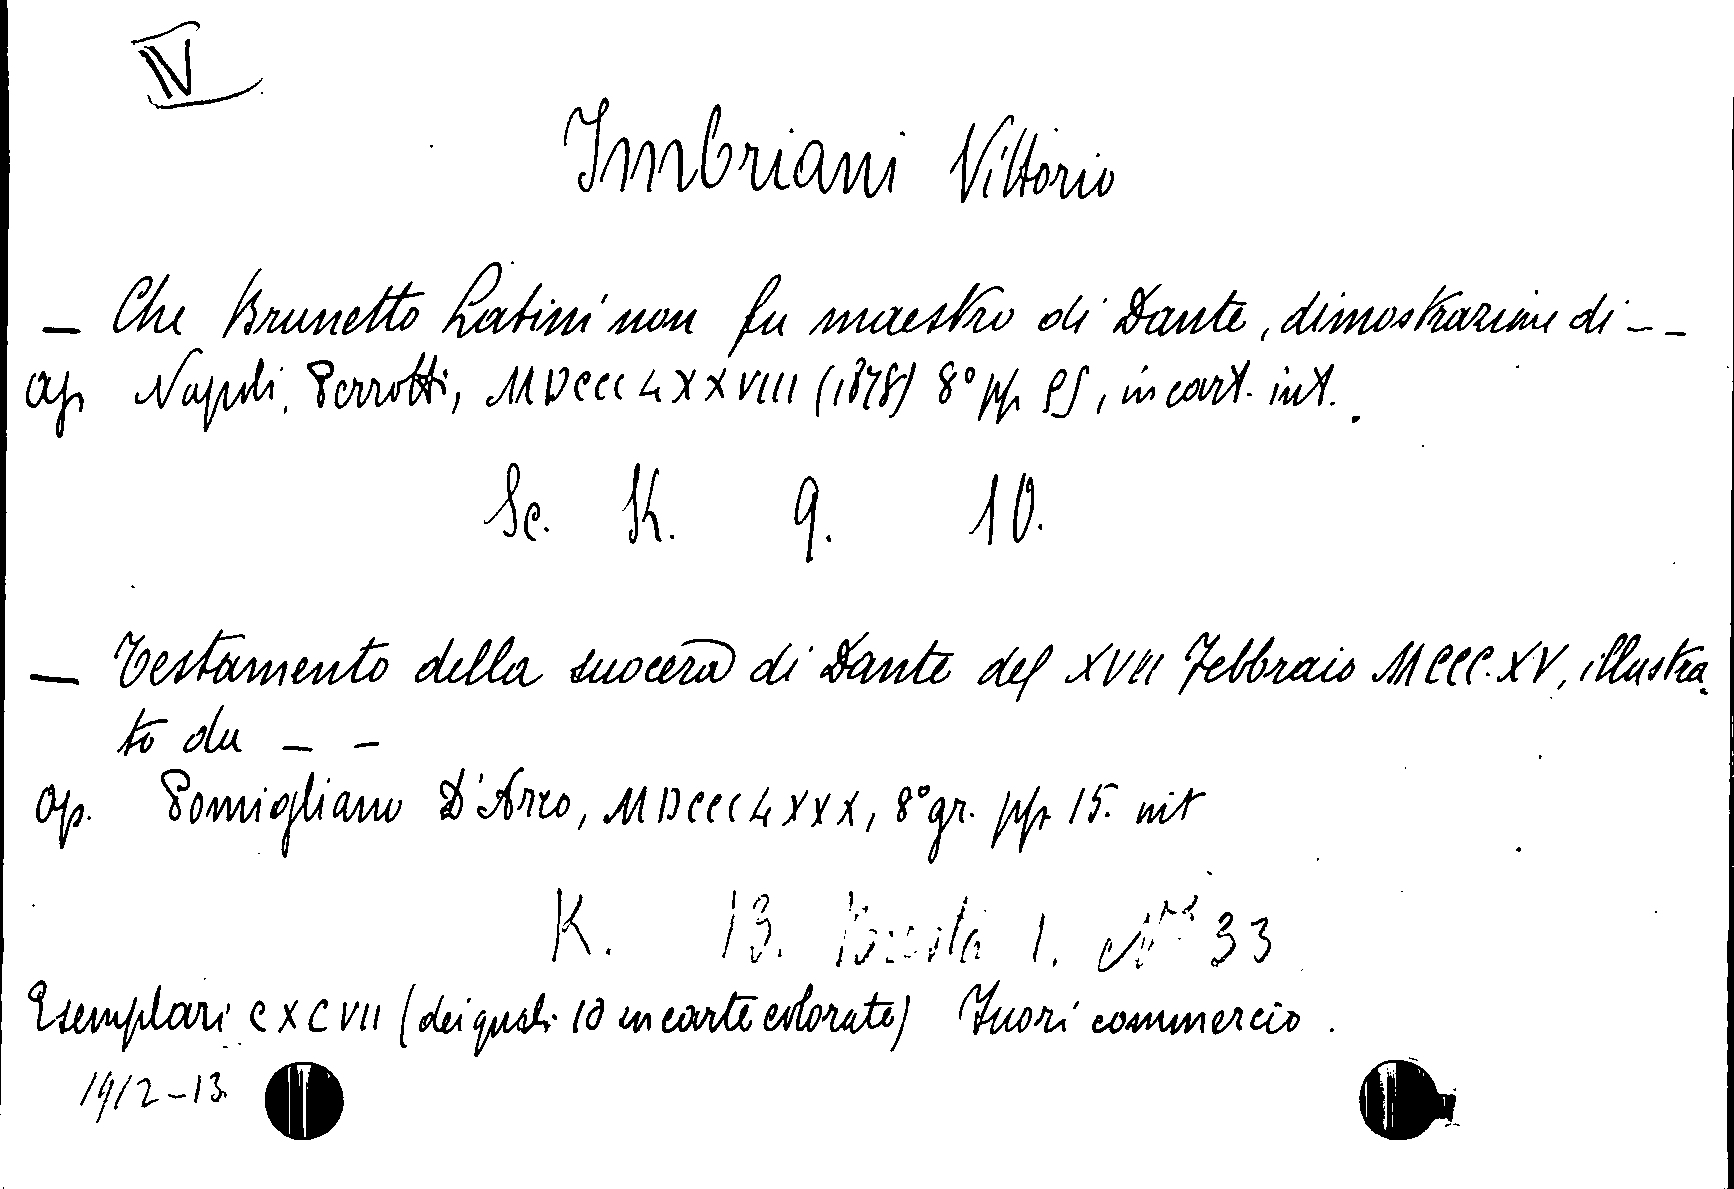 IV
Imbriani Vittorio
— Che Brunetto Latini non fu maestro di Dante, dimostrazione di – –
op Napoli, Perrotti, MDCCCLXXVIII (1878) 8° pp , in cart. int.
Sc. K. 9. 10.
— Testamento della suocera di Dante del XVII Febbraio MCCC.XV, illustra-
to da – –
op. Pomigliano D'Arco, MDCCCLXXX, 8° gr. pp 15. int
K. 13. Busta 1. N° 33
Esemplari CXCVII (dei quali 10 in carte colorate) Fuori commercio.
1912-13.